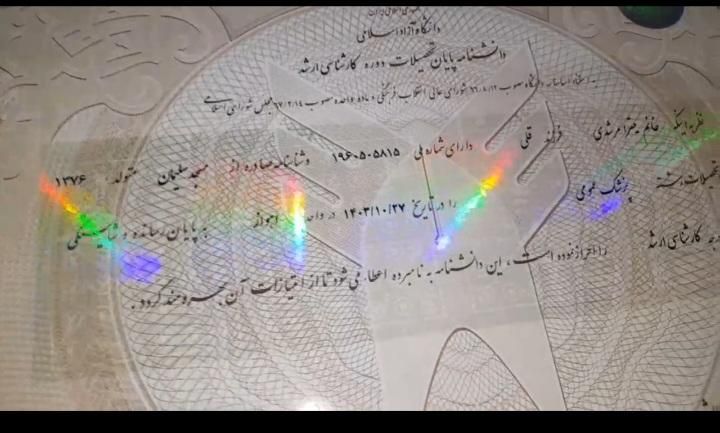 جمهوری اسلامی ایران
دانشگاه آزاد اسلامی
دانشنامه پایان تحصیلات دوره کارشناسی ارشد
به استناد اساسنامه دانشگاه مصوب ۶۶/۸/۱۲ شورای عالی انقلاب فرهنگی و ماده واحده مصوب ۶۷/۲/۱۴ مجلس شورای اسلامی
نظر به اینکه خانم میترا مرشدی فرزند قلی دارای شماره ملی ۱۹۶۰۵۰۵۸۱۵ و شناسنامه صادره از مسجد سلیمان متولد ۱۳۷۶
تحصیلات رشته پزشک عمومی را در تاریخ ۱۴۰۳/۱۰/۲۷ در واحد اهواز به پایان رسانده و شایستگی
درجه کارشناسی ارشد را احراز نموده است، این دانشنامه به نامبرده اعطا می شود تا از امتیازات آن بهره مند گردد.